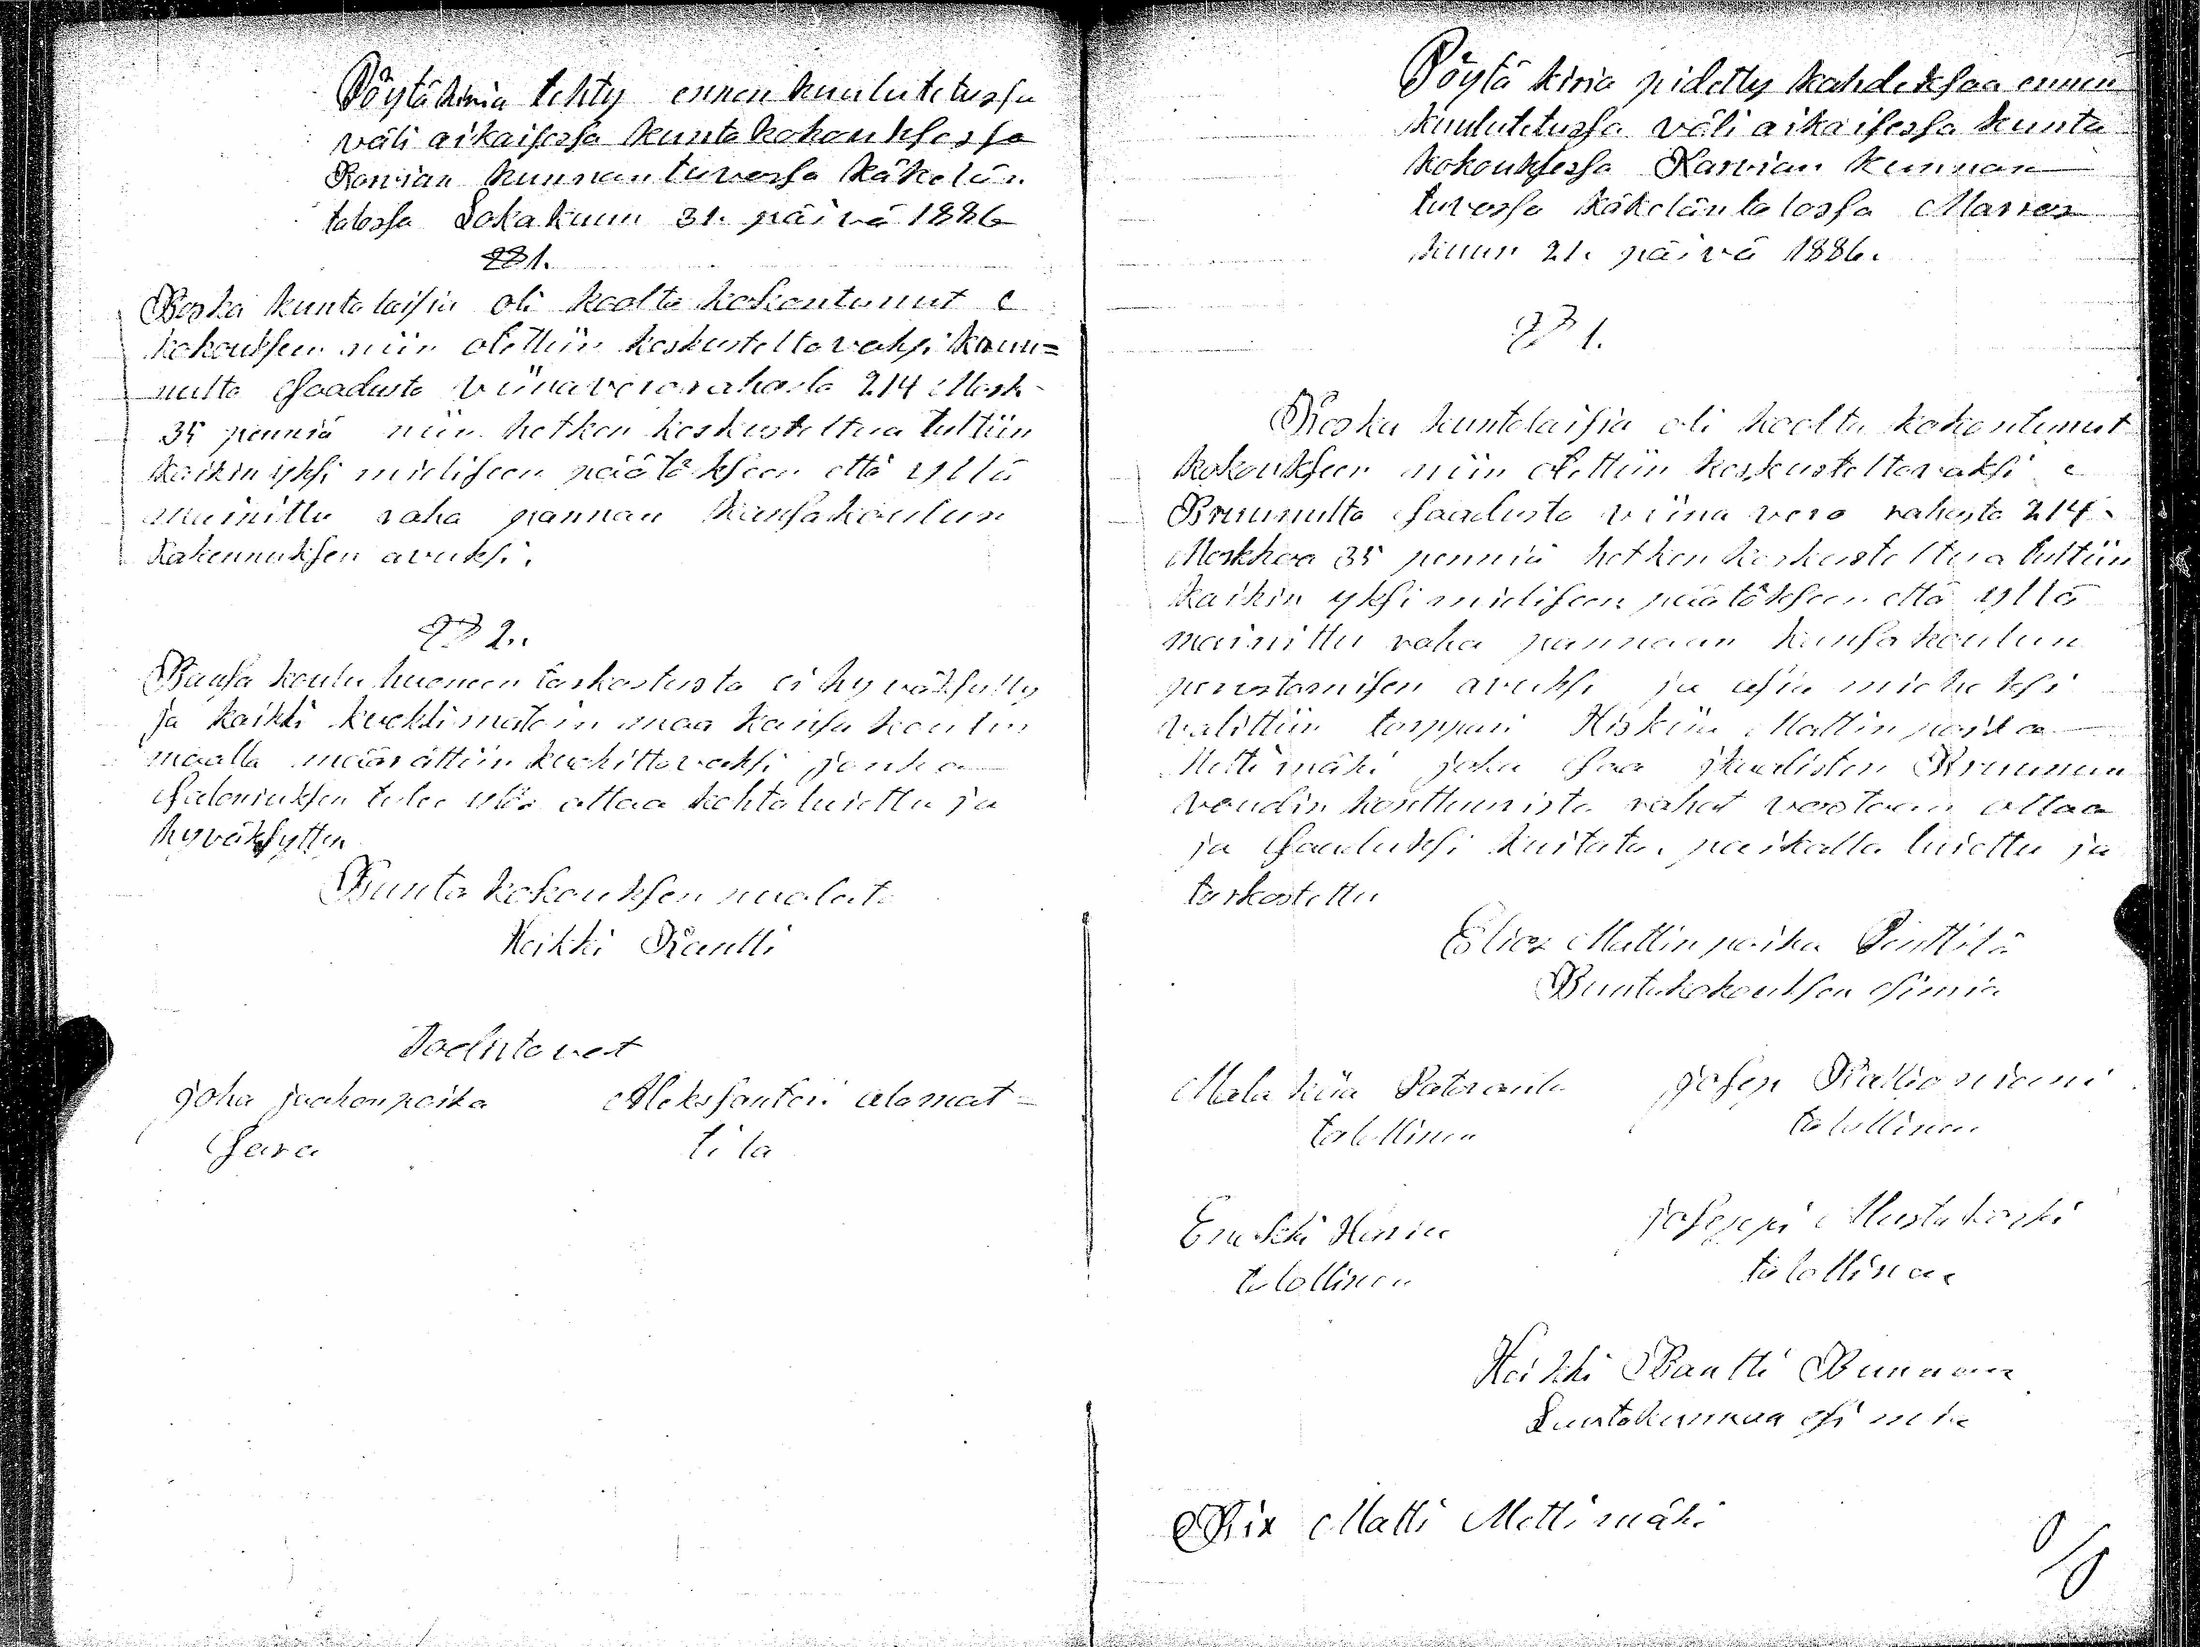 Pöytäkiria tehty ennen kuulutetussa
väli aikaisessa kunta kokouksessa
Karvian kunnan tuvassa Käkelän
talossa Lokakuun 31. päivä 1886
§ 1.
Koska kuntalaisia oli koolta kokontunut
kokoukseen niin otettiin keskusteltavaksi kruu=
nulta saadusta viinaverorahasta 214 Mark.
35 penniä niin hetken keskusteltua tultiin
kaikin yksi mieliseen päätökseen että yllä
mainittu raha pannan kansakoulun
Rakennuksen avuksi.
§ 2.
Kansa koulu huoneen tarkastusta ei hyväksytty
ja kaikki kuokkimatoin maa kansa koulun
maalla määrättiin kuokittavaksi jonka
Saloniuksen tulee ylös ottaa kohta luiettu ja
hyväksytty
Kunta kokouksen puolesta
Heikki Kantti
Todistavat
Joha jaakonpoika Aleksanteri alamat=
Sara tila
Pöytä kiria pidetty kahdeksaa ennen
kuulutetussa väli aikaisessa kunta
kokouksessa Karvian kunnan
tuvassa Käkeläntalossa Marras
kuun 21. päivä 1886.
§ 1.
Koska kuntalaisia oli koolta kokontunut
kokoukseen niin otettiin keskusteltavaksi
Kruunulta saadusta viina vero rahasta 214
Markkaa 35 penniä hetken keskusteltua tultiin
kaikin yksi mieliseen päätökseen että yllä
mainittu raha pannaan kansakoulun
perustamisen avuksi ja asia mieheksi
valittiin torppari Hiskia Mattin poika
Mettimäki joka saa ikaalisten Kruunun
voudin konttuurista rahat vastaan ottaa
ja saaduksi kuitata. paikalla luiettu ja
tarkastettu
Elias Mattin poika Penttilä
Kuntakokouksen esimia
Malakia Sateranta josep Kallioniemi
talollinen talollinen
Enokki Haria joseppi Mustakoski
talollinen talollinen
Heikki Kantti Kunnan
Lautakunnan esimia
Matti Mettimäki